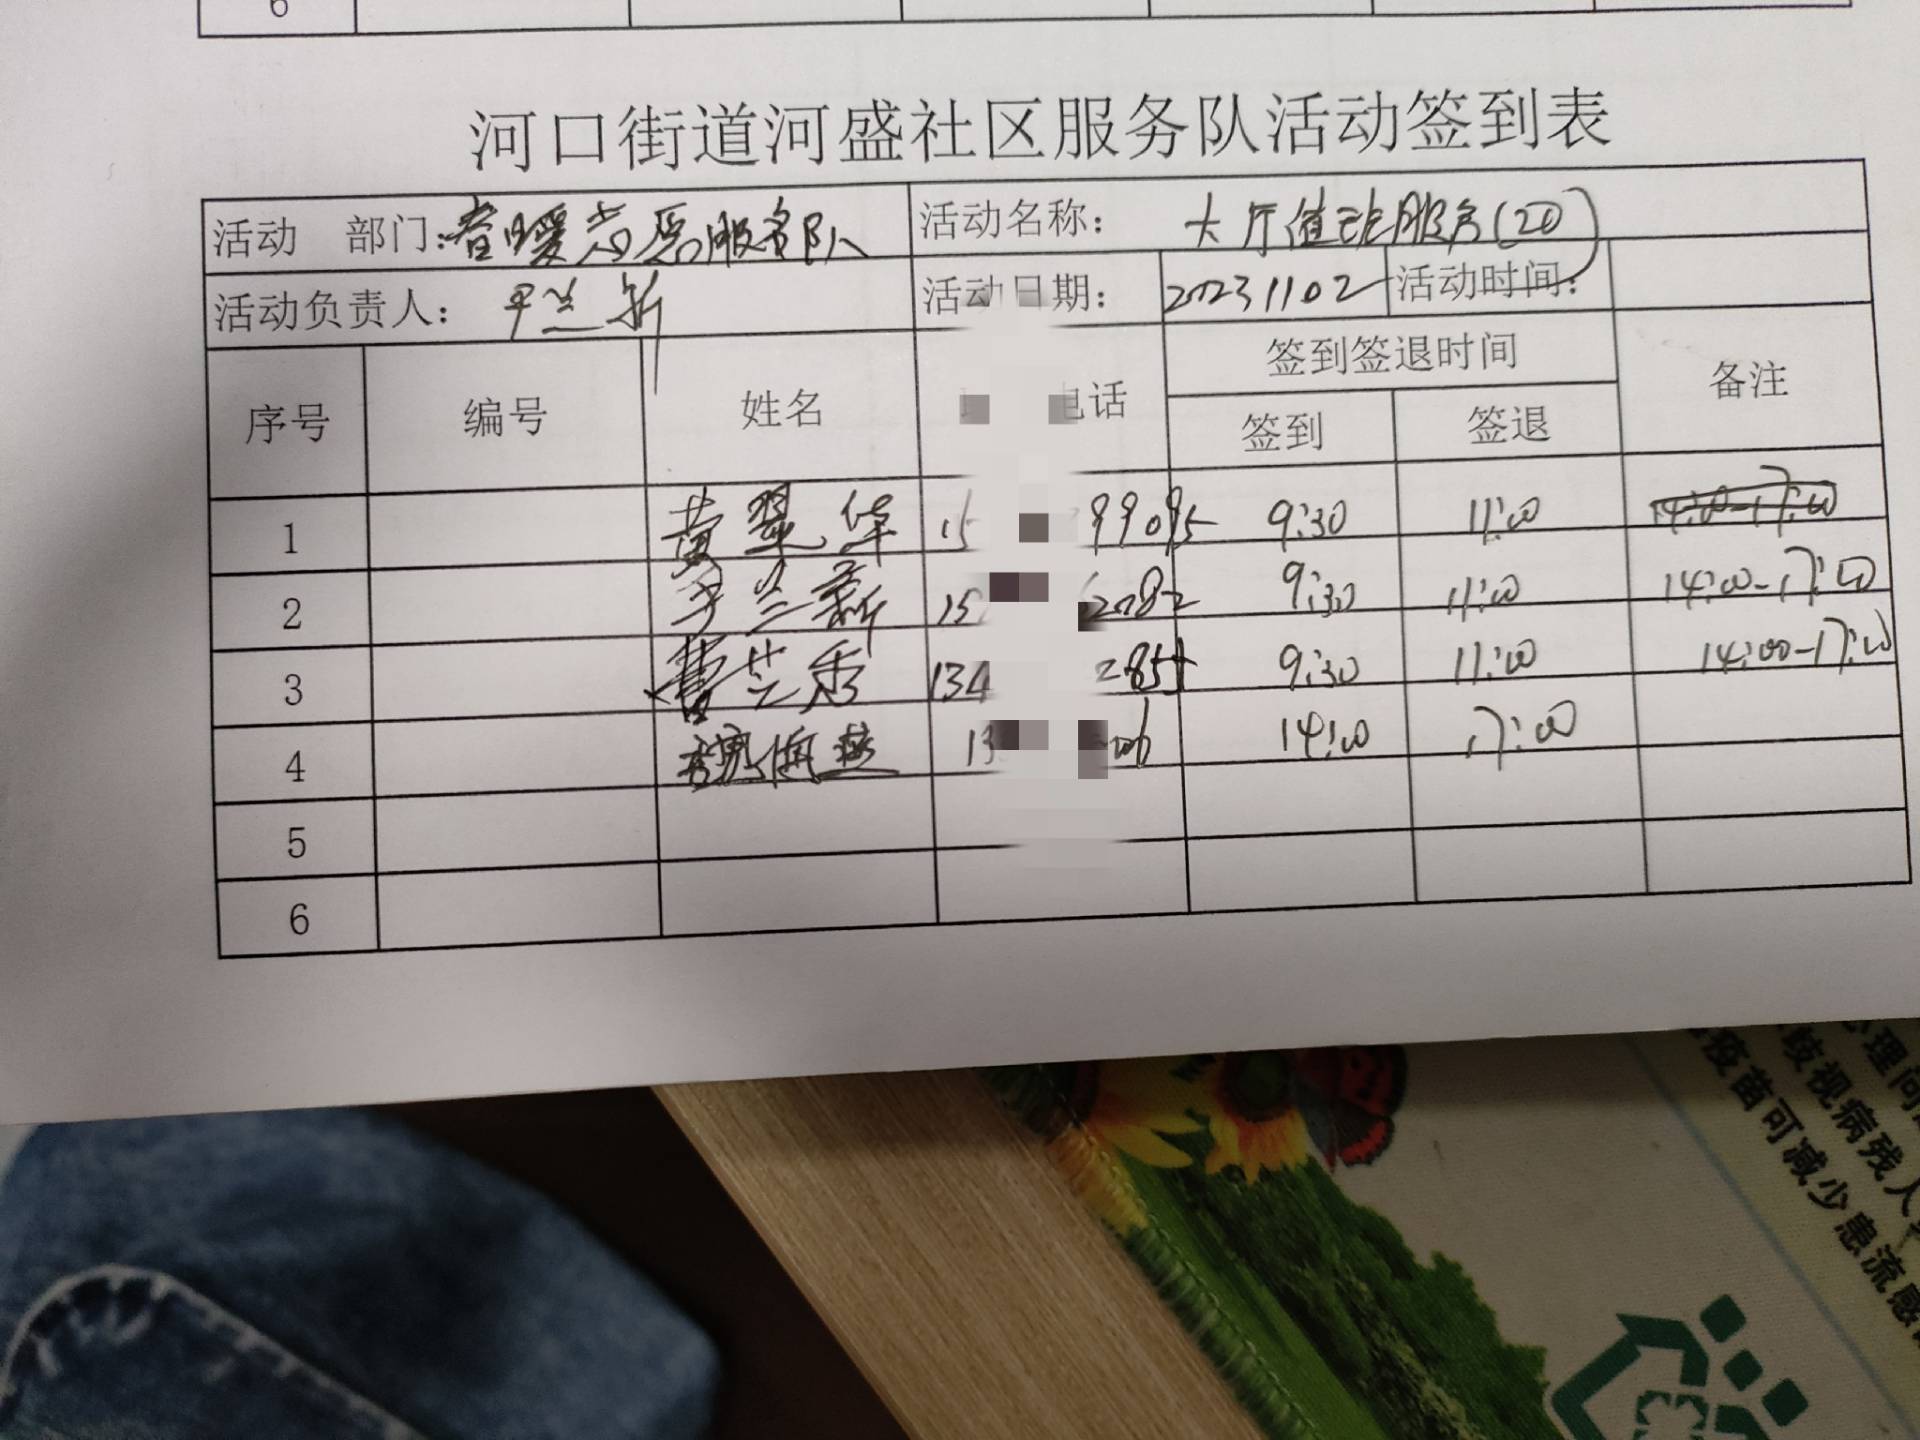 6
河口街道河盛社区服务队活动签到表
活动 部门:春暖志愿服务队 活动名称: 大厅值班服务(20)
活动负责人: 于兰新 活动日期: 20231102 活动时间:
序号 编号 姓名 电话 签到签退时间 备注
签到 签退
1 黄翠华 15 99095 9:30 11:00 14:00-17:00
2 于兰新 15 2282 9:30 11:00 14:00-17:00
3 曹芝秀 134 2855 9:30 11:00 14:00-17:00
4 13 14:00 17:00
5
6
心理问
歧视病残人
疫苗可减少患流感